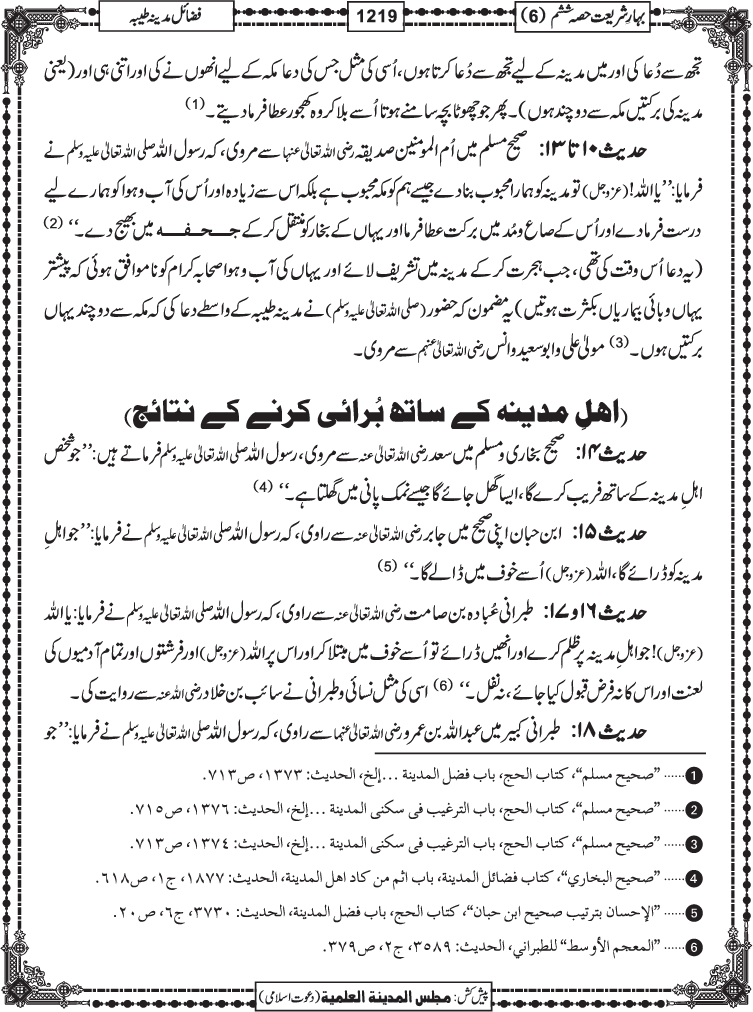 بہار شریعت حصہ ششم (6)
1219
فضائل مدینہ طیبہ
تجھ سے دُعا کی اور میں مدینہ کے لیے تجھ سے دُعا کرتا ہوں، اُسی کی مثل جس کی دعا مکہ کے لیے انھوں نے کی اور اتنی ہی اور (یعنی
مدینہ کی برکتیں مکہ سے دوچند ہوں)۔ پھر جو چھوٹا بچہ سامنے ہوتا اُسے بلا کر وہ کھجور عطا فرما دیتے۔ (1)
حدیث ۱۰ تا ۱۳: صحیح مسلم میں اُم المومنین صدیقہ رضی اللہ تعالیٰ عنہا سے مروی، کہ رسول اللہ صلی اللہ تعالیٰ علیہ وسلم نے
فرمایا: ”یا اللہ! (عزوجل) تو مدینہ کو ہمارا محبوب بنا دے جیسے ہم کو مکہ محبوب ہے بلکہ اس سے زیادہ اور اُس کی آب و ہوا کو ہمارے لیے
درست فرما دے اور اُس کے صاع و مُد میں برکت عطا فرما اور یہاں کے بخار کو منتقل کر کے جحفہ میں بھیج دے۔“ (2)
(یہ دعا اُس وقت کی تھی، جب ہجرت کر کے مدینہ میں تشریف لائے اور یہاں کی آب و ہوا صحابہ کرام کو نا موافق ہوئی کہ پیشتر
یہاں وبائی بیماریاں بکثرت ہوتیں) یہ مضمون کہ حضور (صلی اللہ تعالیٰ علیہ وسلم) نے مدینہ طیبہ کے واسطے دعا کی کہ مکہ سے دوچند یہاں
برکتیں ہوں۔ (3) مولیٰ علی و ابو سعید و انس رضی اللہ تعالیٰ عنہم سے مروی۔
(اهلِ مدینه کے ساتھ بُرائی کرنے کے نتائج)
حدیث ۱۴: صحیح بخاری و مسلم میں سعد رضی اللہ تعالیٰ عنہ سے مروی، رسول اللہ صلی اللہ تعالیٰ علیہ وسلم فرماتے ہیں: ”جو شخص
اہلِ مدینہ کے ساتھ فریب کرے گا، ایسا گھل جائے گا جیسے نمک پانی میں گھلتا ہے۔“ (4)
حدیث ۱۵: ابن حبان اپنی صحیح میں جابر رضی اللہ تعالیٰ عنہ سے راوی، کہ رسول اللہ صلی اللہ تعالیٰ علیہ وسلم نے فرمایا: ”جو اہلِ
مدینہ کو ڈرائے گا، اللہ (عزوجل) اُسے خوف میں ڈالے گا۔“ (5)
حدیث ۱۶ و ۱۷: طبرانی عُبادہ بن صامت رضی اللہ تعالیٰ عنہ سے راوی، کہ رسول اللہ صلی اللہ تعالیٰ علیہ وسلم نے فرمایا: یا اللہ
(عزوجل)! جو اہلِ مدینہ پر ظلم کرے اور انھیں ڈرائے تو اُسے خوف میں مبتلا کر اور اس پر اللہ (عزوجل) اور فرشتوں اور تمام آدمیوں کی
لعنت اور اس کا نہ فرض قبول کیا جائے، نہ نفل۔“ (6) اسی کی مثل نسائی و طبرانی نے سائب بن خلاد رضی اللہ عنہ سے روایت کی۔
حدیث ۱۸: طبرانی کبیر میں عبداللہ بن عمرو رضی اللہ تعالیٰ عنہما سے راوی، کہ رسول اللہ صلی اللہ تعالیٰ علیہ وسلم نے فرمایا: ”جو
1 ...... ”صحیح مسلم“، کتاب الحج، باب فضل المدینة ...إلخ، الحدیث: ۱۳۷۳، ص۷۱۳.
2 ...... ”صحیح مسلم“، کتاب الحج، باب الترغیب فی سکنی المدینة ...إلخ، الحدیث: ۱۳۷۶، ص۷۱۵.
3 ...... ”صحیح مسلم“، کتاب الحج، باب الترغیب فی سکنی المدینة ...إلخ، الحدیث: ۱۳۷۴، ص۷۱۳.
4 ...... ”صحیح البخاري“، کتاب فضائل المدینة، باب اثم من کاد اهل المدینة، الحدیث: ۱۸۷۷، ج۱، ص۶۱۸.
5 ...... ”الإحسان بترتیب صحیح ابن حبان“، کتاب الحج، باب فضل المدینة، الحدیث: ۳۷۳۰، ج۶، ص۲۰.
6 ...... ”المعجم الأوسط“ للطبراني، الحدیث: ۳۵۸۹، ج۲، ص۳۷۹.
پیش کش: مجلس المدینة العلمیة (دعوت اسلامی)